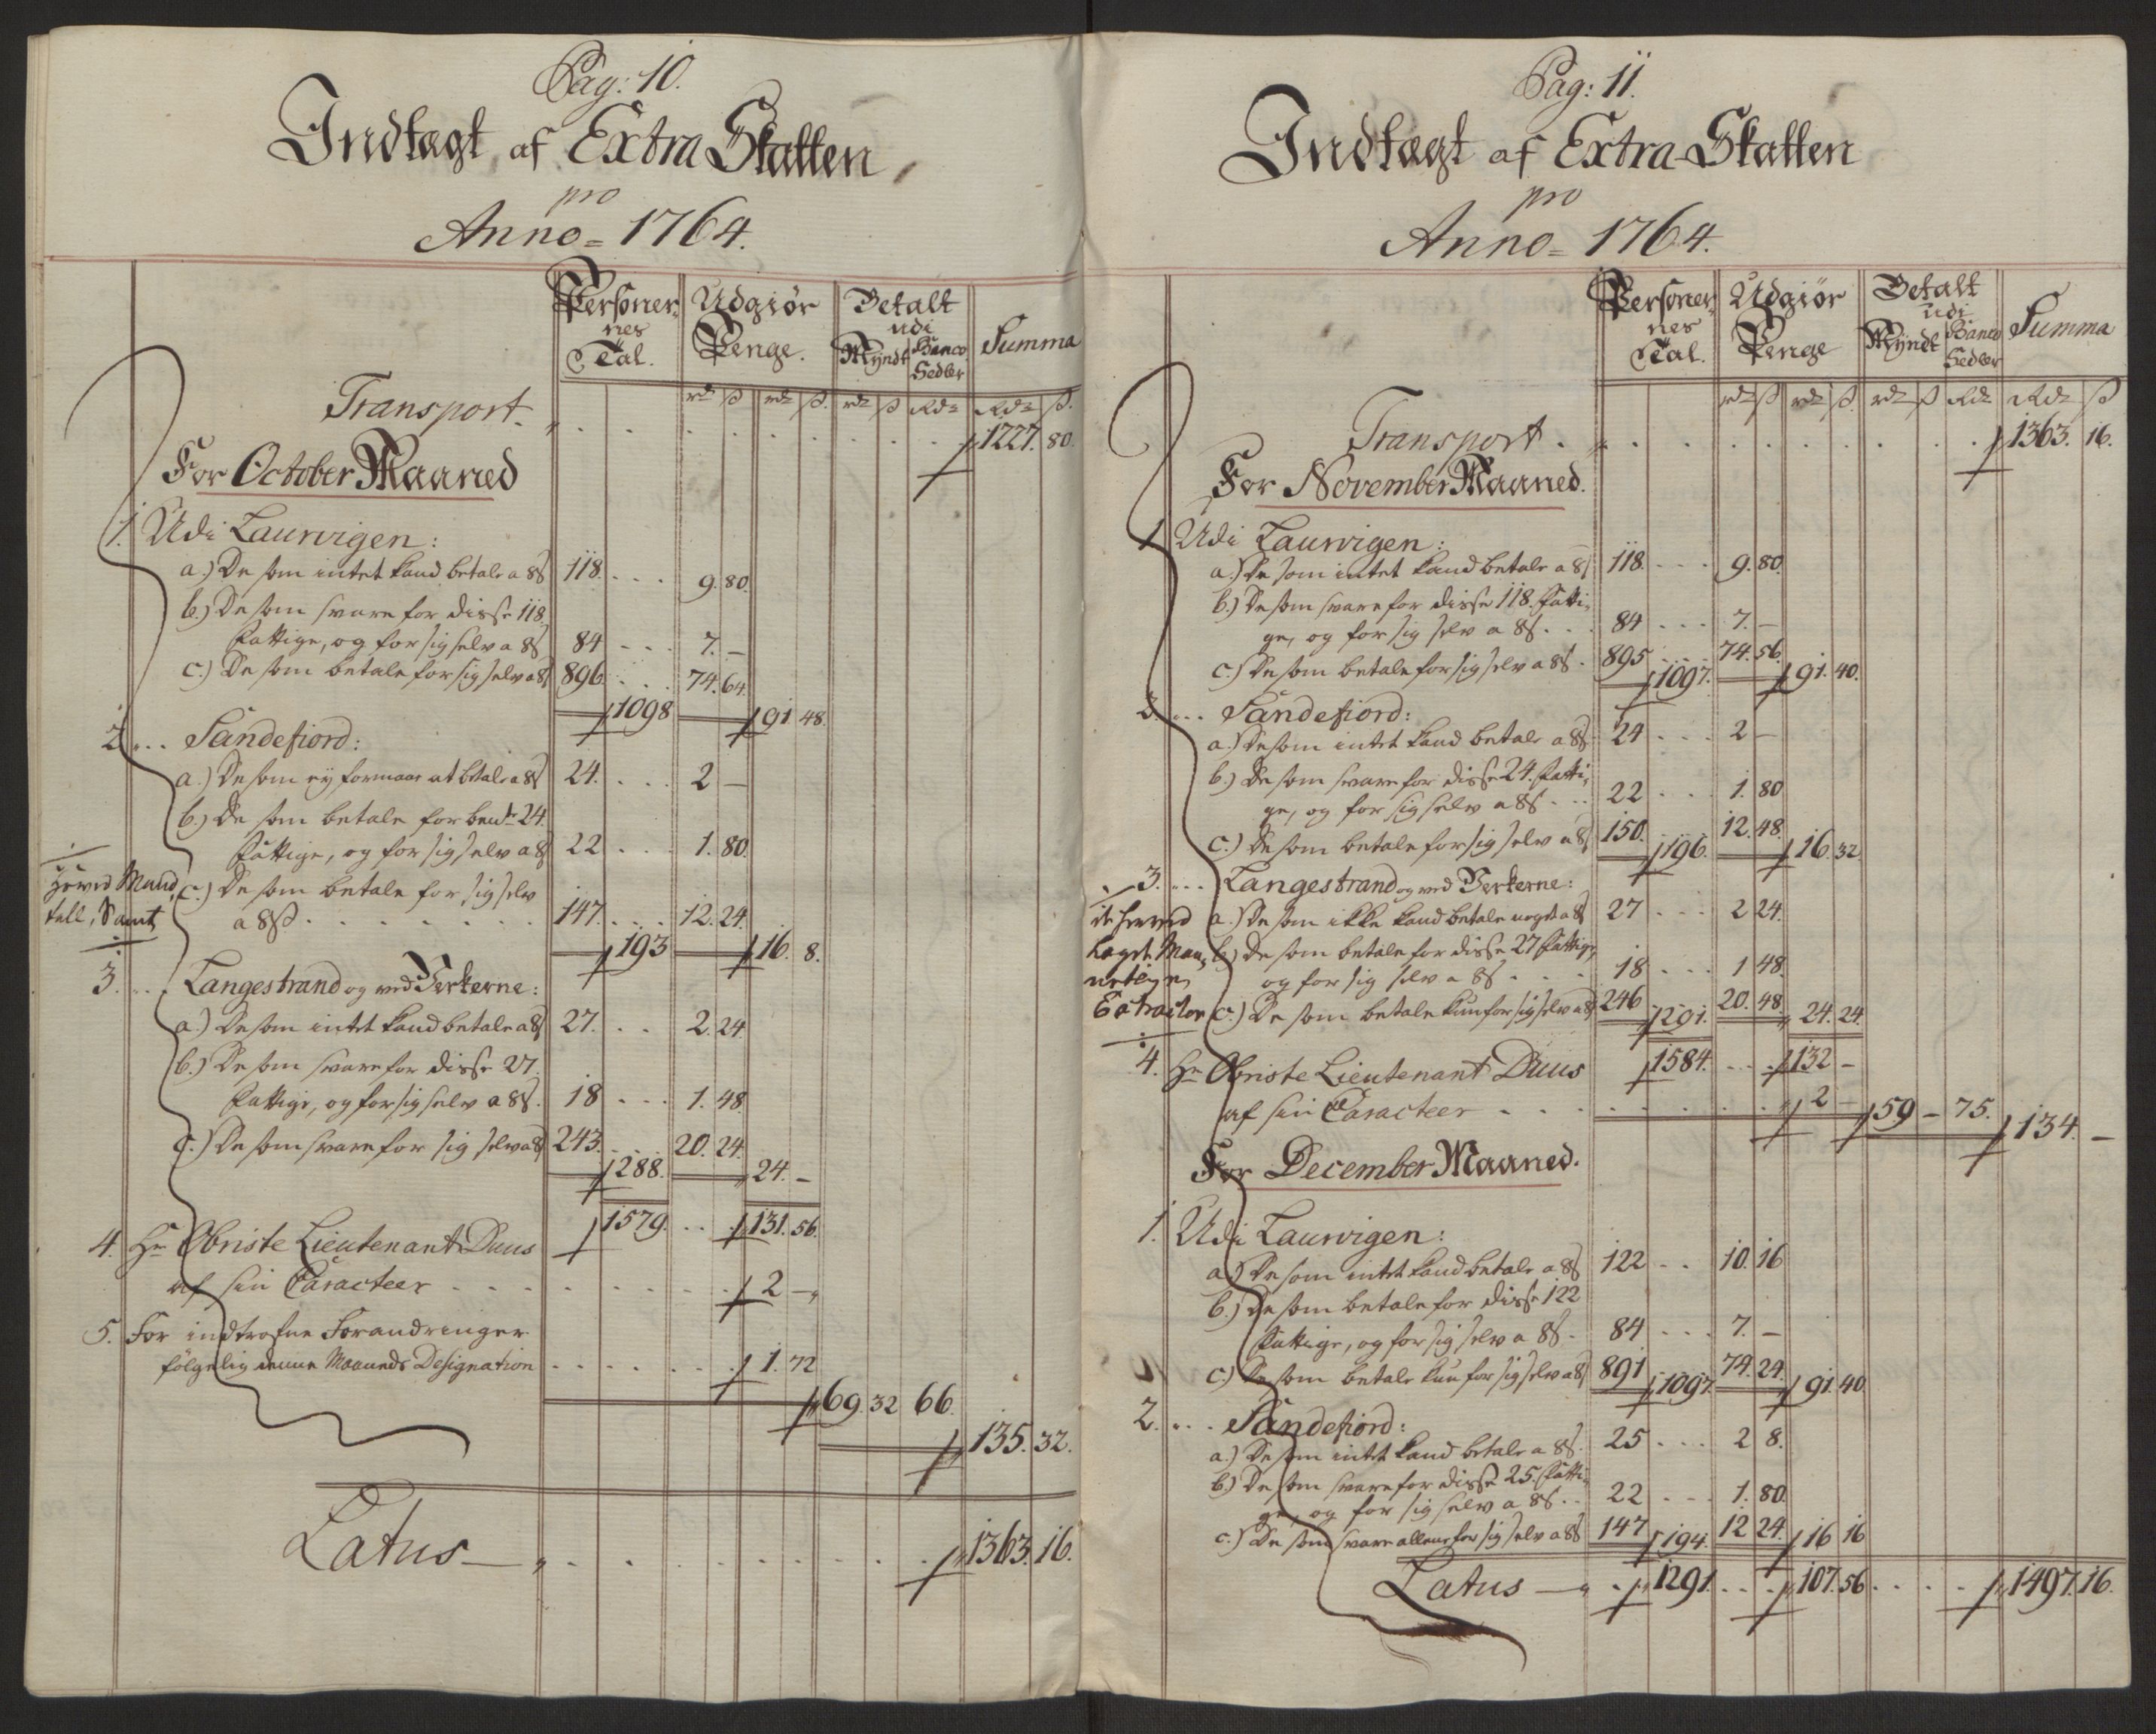 Pag: 10.
Indtægt af Extra Skatten
pro
Anno = 1764.
Personer- Udgiør Betalt Summa
nes Penge. udi
Tal. Myndt Banco
Sedler
rdr ß rdr ß. rdr ß Rdr Rdr ß.
Transport. 1227. 80.
For October Maaned
1. Udi Laurvigen:
a.) De som intet kand betale a 8ß 118. 9. 80.
b.) De som svare for disse 118
Fattige, og for sig selv a 8ß 84 7. –
c.) De som betale for sig selv a 8ß 896. 74. 64.
1098 91. 48.
2. Sandefiord:
a.) De som ey formaar at betale a 8ß 24. 2 –
b.) De som betale for bemte 24.
Fattige, og for sig selv a 8ß 22 1. 80.
c.) De som betale for sig selv
a 8ß 147. 12. 24.
193 16. 8.
Hvored Mand,
tall, Samt
3. Langestrand og ved Verkerne:
a.) De som intet kand betale a 8ß 27. 2. 24
b.) De som svare for disse 27.
Fattige, og for sig selv a 8ß. 18 1. 48.
c.) De som svare for sig selv a 8ß 243. 20. 24.
288. 24. –
1579. 131. 56.
4. Hr Obriste Lieutenant Duus
af sin Caracteer 2 –
5. For indtrofne Forandringer
følgelig denne Maaneds Designation 1. 72
69. 32 66.
135. 32.
Latus 1363. 16.
Pag: 11.
Indtægt af Extra-Skatten
pro
Anno = 1764.
Personer- Udgiør Betalt Summa
nes Penge udi
Tal. Myndt Banco
Sedler
rdr ß rdr ß. rdr ß Rdr Rdr ß
Transport. 1363. 16.
For November Maaned.
1. Udi Laurvigen:
a.) De som intet kand betale a 8ß 118. 9. 80.
b.) De som svare for disse 118. Fatti-
ge, og for sig selv a 8ß. 84 7. –
c.) De som betale for sig selv a 8ß. 895 74. 56.
1097. 91. 40.
2. Sandefiord:
a.) De som intet kand betale a 8ß 24 2 –
b.) De som svare for disse 24. Fatti-
ge, og for sig selv a 8ß. 22 1. 80
c.) De som betale for sig selv a 8ß 150. 12. 48.
196. 16. 32.
3. Langestrand og ved Verkerne:
a.) De som ikke kand betale noget a 8ß 27 2 24.
b.) De som betale for disse 27 Fattige,
og for sig selv a 8ß 18 1 48.
c.) De som betale kun for sig selv a 8ß 246 20. 48.
291. 24. 24.
1584. 132 –
Extracter
4. Hr Obriste Lieutenant Duus
af sin Caracteer 2 – 59 – 75. 134. –
For December Maaned.
1. Udi Laurvigen:
a.) De som intet kand betale a 8ß 122 10. 16
b.) De som betale for disse 122
Fattige, og for sig selv a 8ß. 84 7. –
c.) De som betale kun for sig selv a 8ß 891 74. 24.
1097. 91. 40.
2. Sandefiord:
a.) De som intet kand betale a 8ß. 25 2 8.
b.) De som svare for disse 25. Fatti-
ge, og for sig selv a 8ß. 22 1. 80.
c.) De som svare allene for sig selv a 8ß 147 12 24.
194. 16 16
Latus 1291. 107. 56 1497. 16.